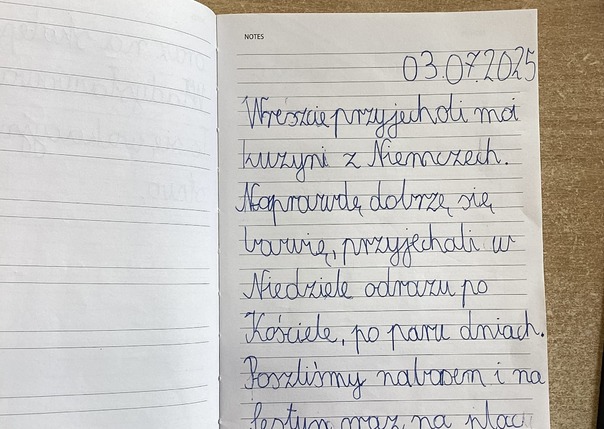 NOTES
03.07.2025
Wreszcie przyjechali moi
kuzyni z Niemczech.
Naprawdę dobrzę się
bawię, przyjechali w
Niedziele odrazu po
Kościele, po paru dniach.
Poszliśmy nabasem i na
festyn oraz na plac